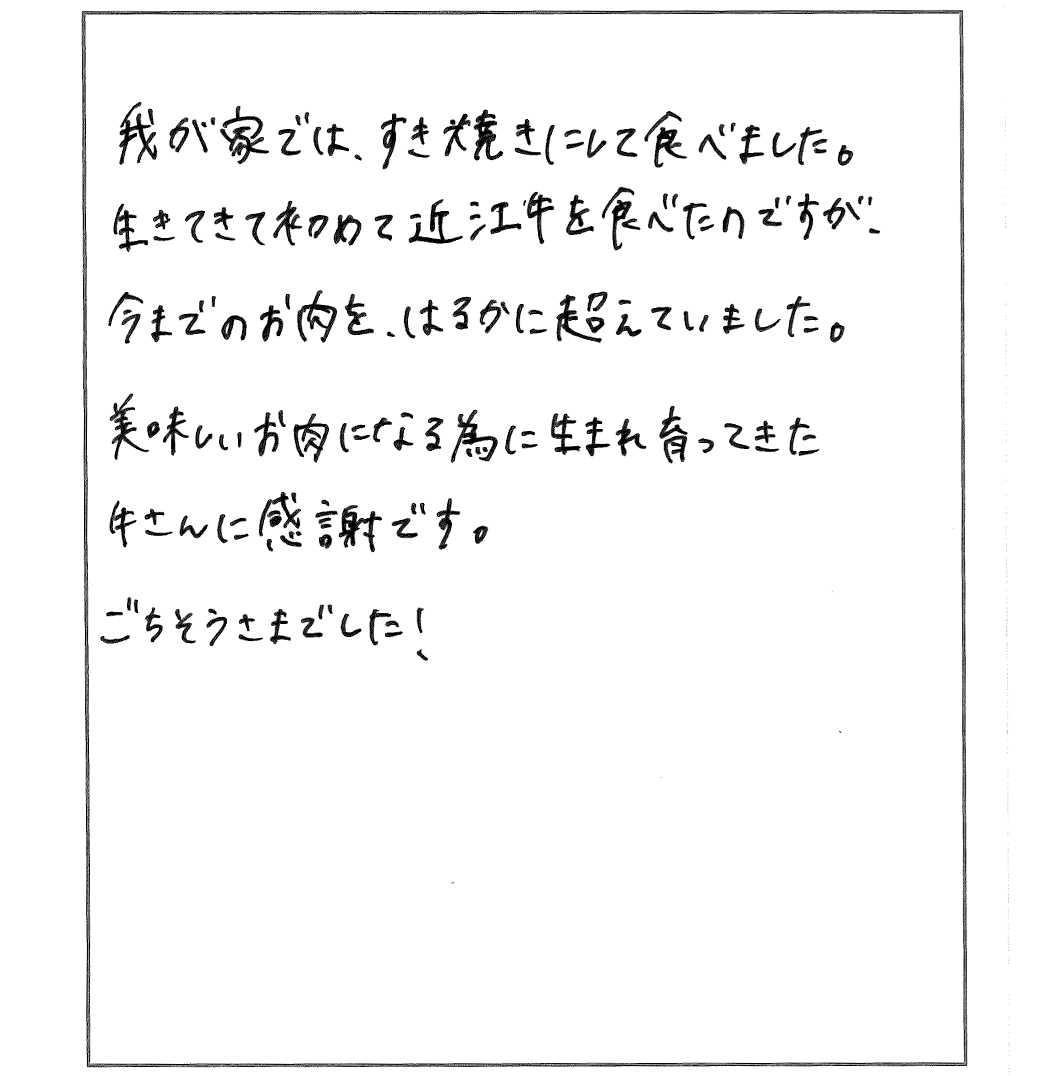 我が家では、すき焼きにして食べました。
生きてきて初めて近江牛を食べたのですが、
今までのお肉を、はるかに超えていました。
美味しいお肉になる為に生まれ育ってきた
牛さんに感謝です。
ごちそうさまでした!